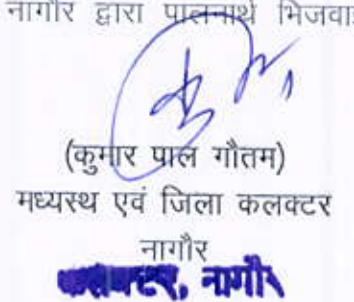 नागौर द्वारा पालनार्थ भिजवाई
(कुमार पाल गौतम)
मध्यस्थ एवं जिला कलक्टर
नागौर
कलक्टर, नागौर